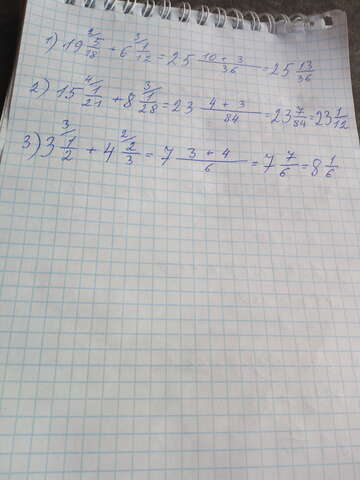 1) 19 2/ 5/18 + 6 3/ 1/12 = 25 10 + 3/36 = 25 13/36
2) 15 4/ 1/21 + 8 3/ 1/28 = 23 4 + 3/84 = 23 7/84 = 23 1/12
3) 3 3/ 1/2 + 4 2/ 2/3 = 7 3 + 4/6 = 7 7/6 = 8 1/6